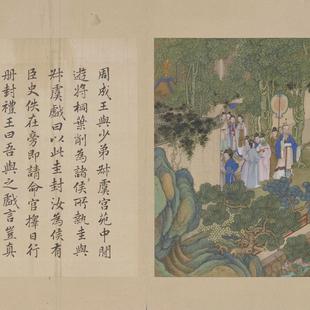 周成王與少弟叔虞宮苑中閒
遊將桐葉削為諸侯所執圭與
叔虞戲曰以此圭封汝為侯有
臣史佚在旁即請命官擇日行
冊封禮王曰吾與之戲言豈真